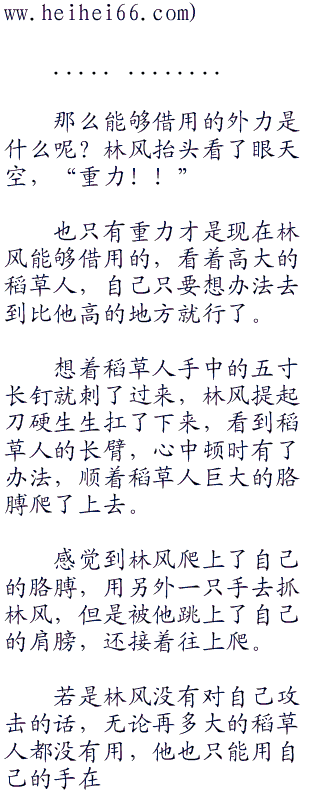 ww.heihei66.com)
..... ........
那么能够借用的外力是
什么呢？林风抬头看了眼天
空，“重力！！”
也只有重力才是现在林
风能够借用的，看着高大的
稻草人，自己只要想办法去
到比他高的地方就行了。
想着稻草人手中的五寸
长钉就刺了过来，林风提起
刀硬生生扛了下来，看到稻
草人的长臂，心中顿时有了
办法，顺着稻草人巨大的胳
膊爬了上去。
感觉到林风爬上了自己
的胳膊，用另外一只手去抓
林风，但是被他跳上了自己
的肩膀，还接着往上爬。
若是林风没有对自己攻
击的话，无论再多大的稻草
人都没有用，他也只能用自
己的手在